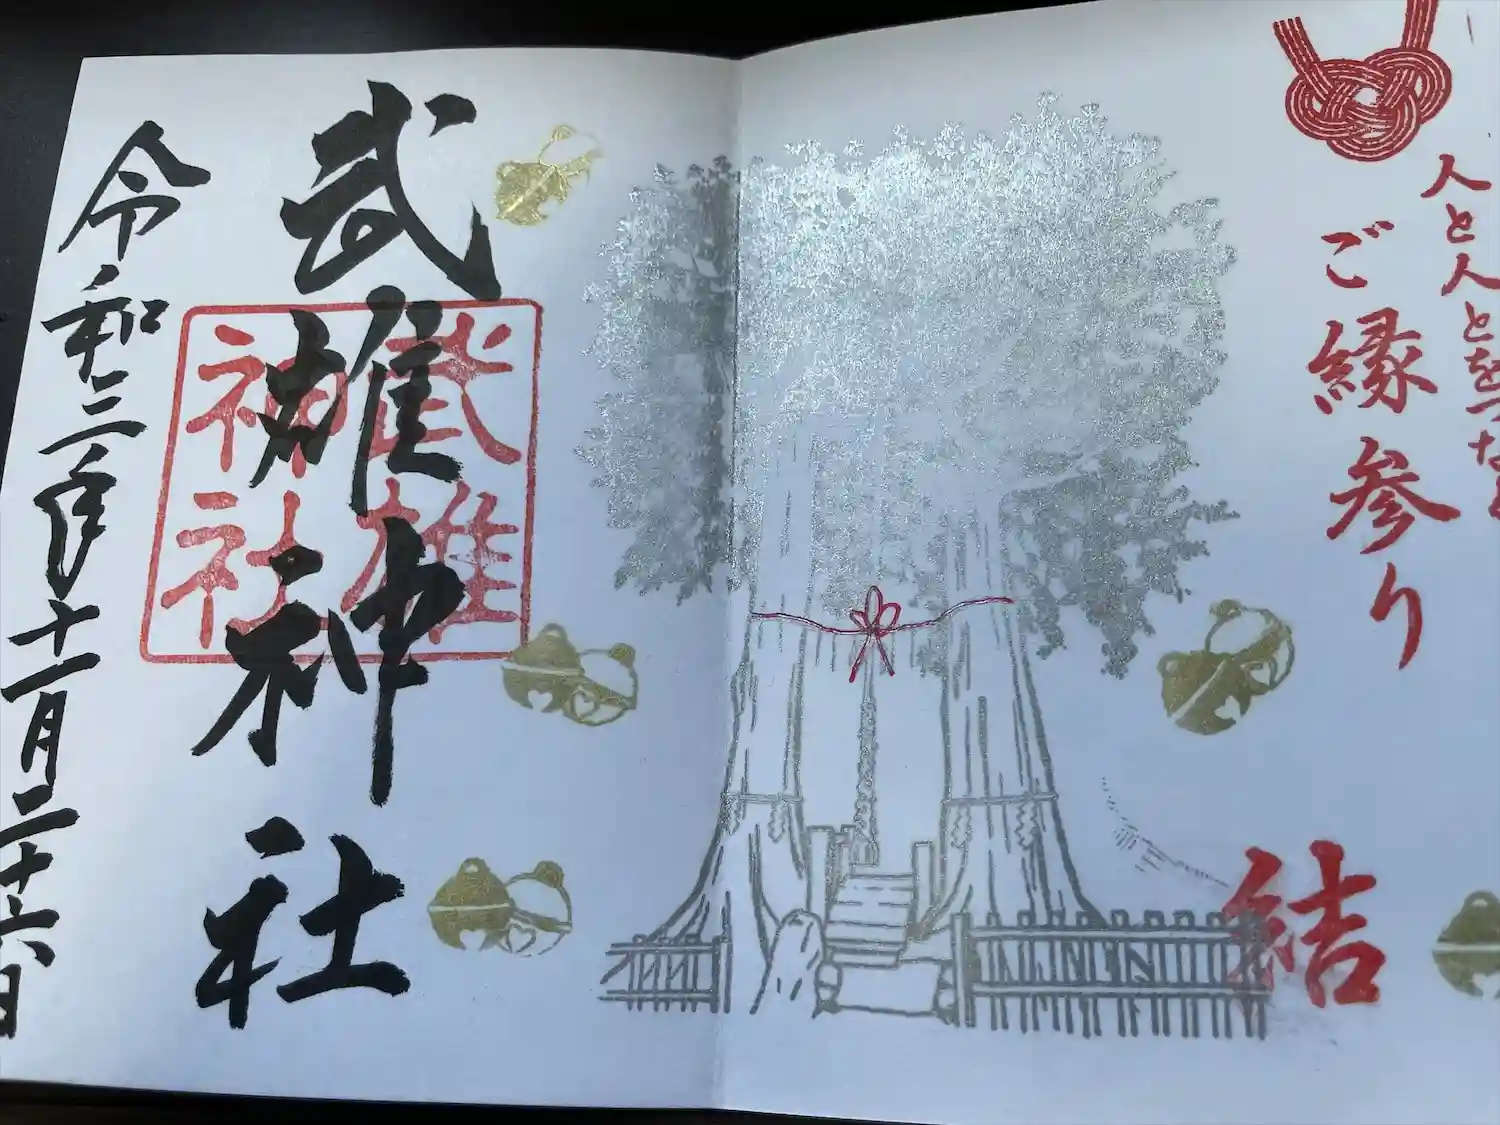 人と人とをつなぐ
ご縁参り
結
武雄神社
武雄
神社
令和三年十一月二十六日